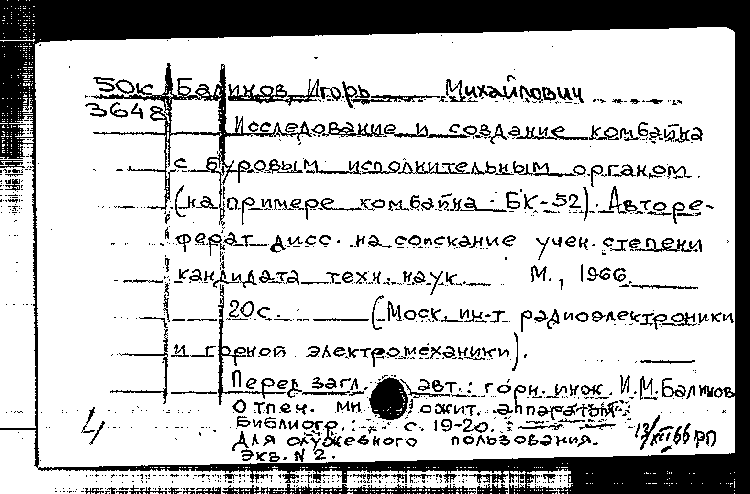 50к Балинов, Игорь Михайлович
3648
Исследование и создание комбайна
с буровым исполнительным органом
(на примере комбайна БК-52). Авторе-
ферат дисс. на соискание учен. степени
кандидата техн. наук. М., 1966.
20с. (Моск. ин-т радиоэлектроники
и горной электромеханики).
Перед загл. авт.: горн. инж. И.М. Балинов
Отпеч. мн ожит. аппаратом
Библиогр.: с. 19-20.
Для служебного пользования.
Экз. N 2.
13/XII 66 РП
4